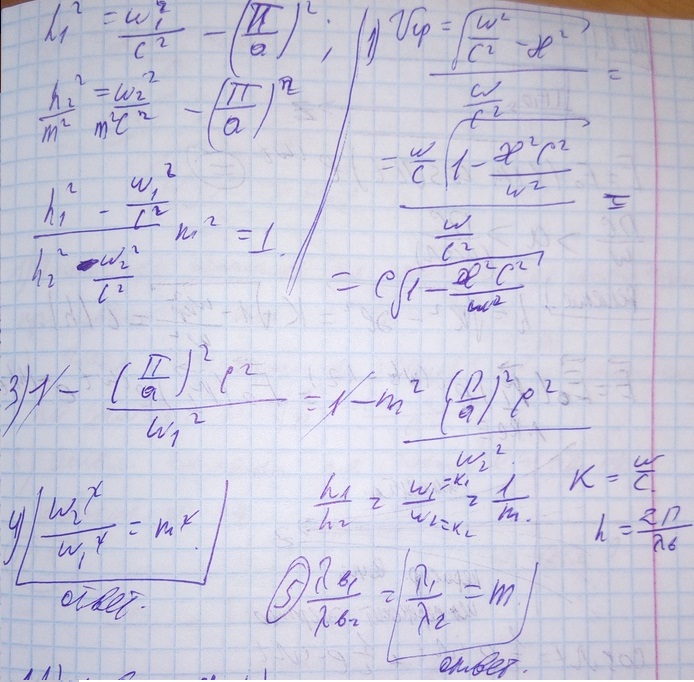 h₁² = w₁²/c² − (π/a)²;
h₂²/m² = w₂²/m²c² − (π/a)²
(h₁² − w₁²/c²)/(h₂² − w₂²/c²) m² = 1.
1) Vгр = √(w²/c² − æ²)/(w/c²) =
= (w/c √(1 − æ²c²/w²))/(w/c²) =
= c√(1 − æ²c²/w²)
3) 1 − (π/a)²c²/w₁² = 1 − m²(π/a)²c²/w₂².
4) w₂²/w₁² = m².
ответ.
h₁/h₂ = w₁=k₁/w₂=k₂ = 1/m.
K = w/c
h = 2π/λв
5) λв₁/λв₂ = λ₁/λ₂ = m
ответ.